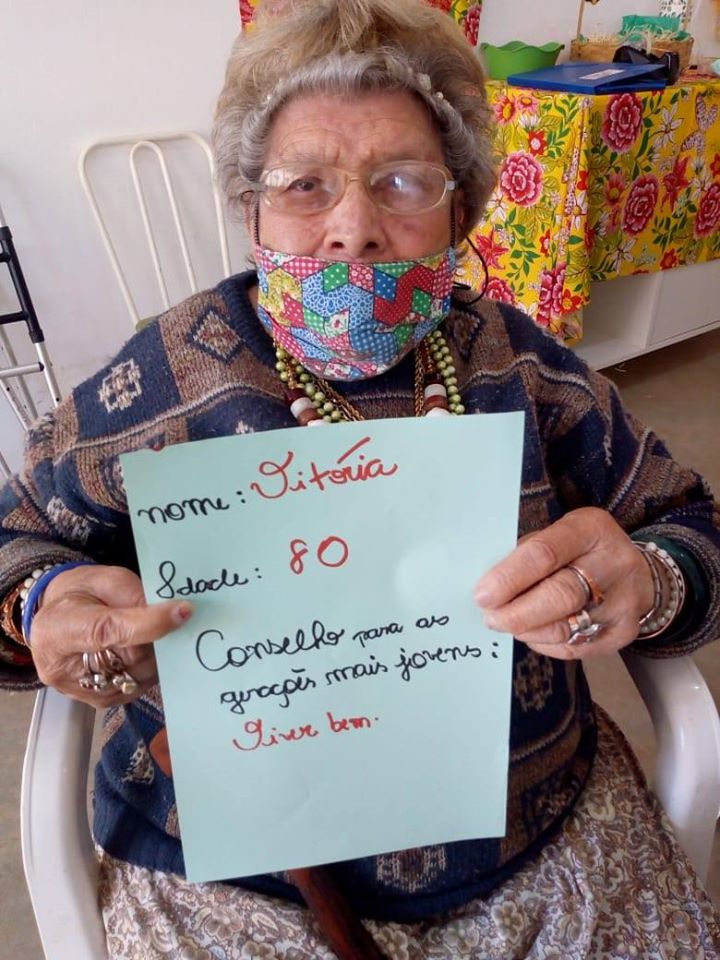 nome: Vitória
Idade: 80
Conselho para as
gerações mais jovens:
Viver bem.